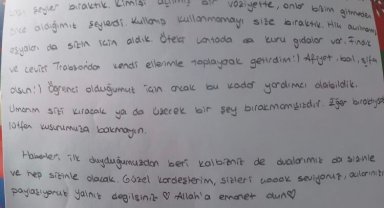 bazı şeyler bıraktık. Kimisi açılmış bir vaziyette, onlar bizim gitmeden
önce aldığımız şeylerdi. Kullanıp kullanmamayı size bıraktık.
eşyaları da sizin için aldık. Öteki çantada da kuru gıdalar var. Fındık
ve cevizi Trabzondan kendi ellerimle toplayarak getirdim:) Afiyet, bal, şifa
olsun:) Öğrenci olduğumuz için ancak bu kadar yardımcı olabildik.
Umarım sizi kıracak ya da üzecek bir şey bırakmamışızdır. Eğer
lütfen kusurumuza bakmayın.
Haberleri ilk duyduğumuzdan beri kalbimiz de dualarımız da sizinle
ve hep sizinle olacak. Güzel kardeşlerim, sizleri çooook seviyoruz, acılarınızı
paylaşıyoruz yalnız değilsiniz ♡ Allah'a emanet olun ♡